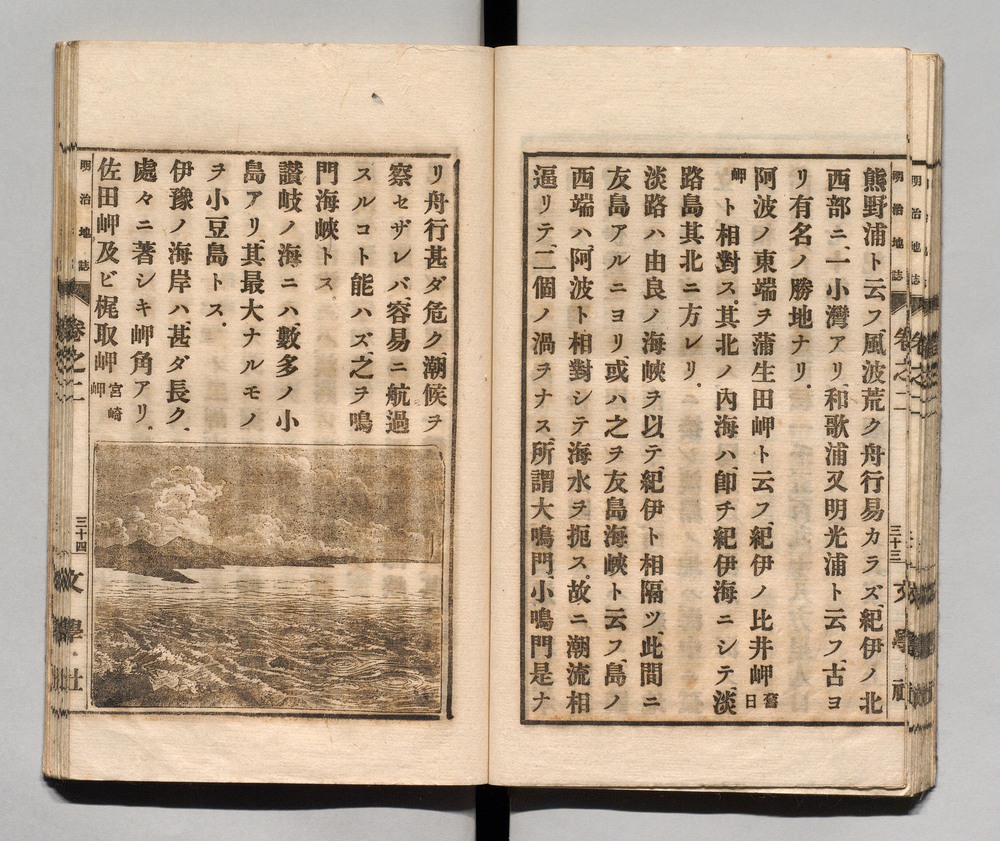 熊野浦ト云フ、風波荒ク舟行易カラズ、紀伊ノ北
西部ニ、一小灣アリ、和歌浦又明光浦ト云フ、古ヨ
リ有名ノ勝地ナリ、
阿波ノ東端ヲ蒲生田岬ト云フ、紀伊ノ比井岬舊日
岬ト相對ス、其北ノ內海ハ、卽チ紀伊海ニシテ、淡
路島其北ニ方レリ、
淡路ハ由良ノ海峽ヲ以テ、紀伊ト相隔ツ、此間ニ
友島アルニヨリ、或ハ之ヲ友島海峽ト云フ、島ノ
西端ハ、阿波ト相對シテ海水ヲ扼ス、故ニ潮流相
逼リテ、二個ノ渦ヲナス、所謂大鳴門、小鳴門是ナ
明治地誌 卷之二 三十三 文學社
リ舟行甚ダ危ク、潮候ヲ
察セザレバ、容易ニ航過
スルコト能ハズ、之ヲ鳴
門海峽トス
讃岐ノ海ニハ、數多ノ小
島アリ、其最大ナルモノ
ヲ小豆島トス、
伊豫ノ海岸ハ甚ダ長ク、
處々ニ著シキ岬角アリ、
佐田岬及ビ梶取岬宮崎岬
明治地誌 卷之二 三十四 文學社